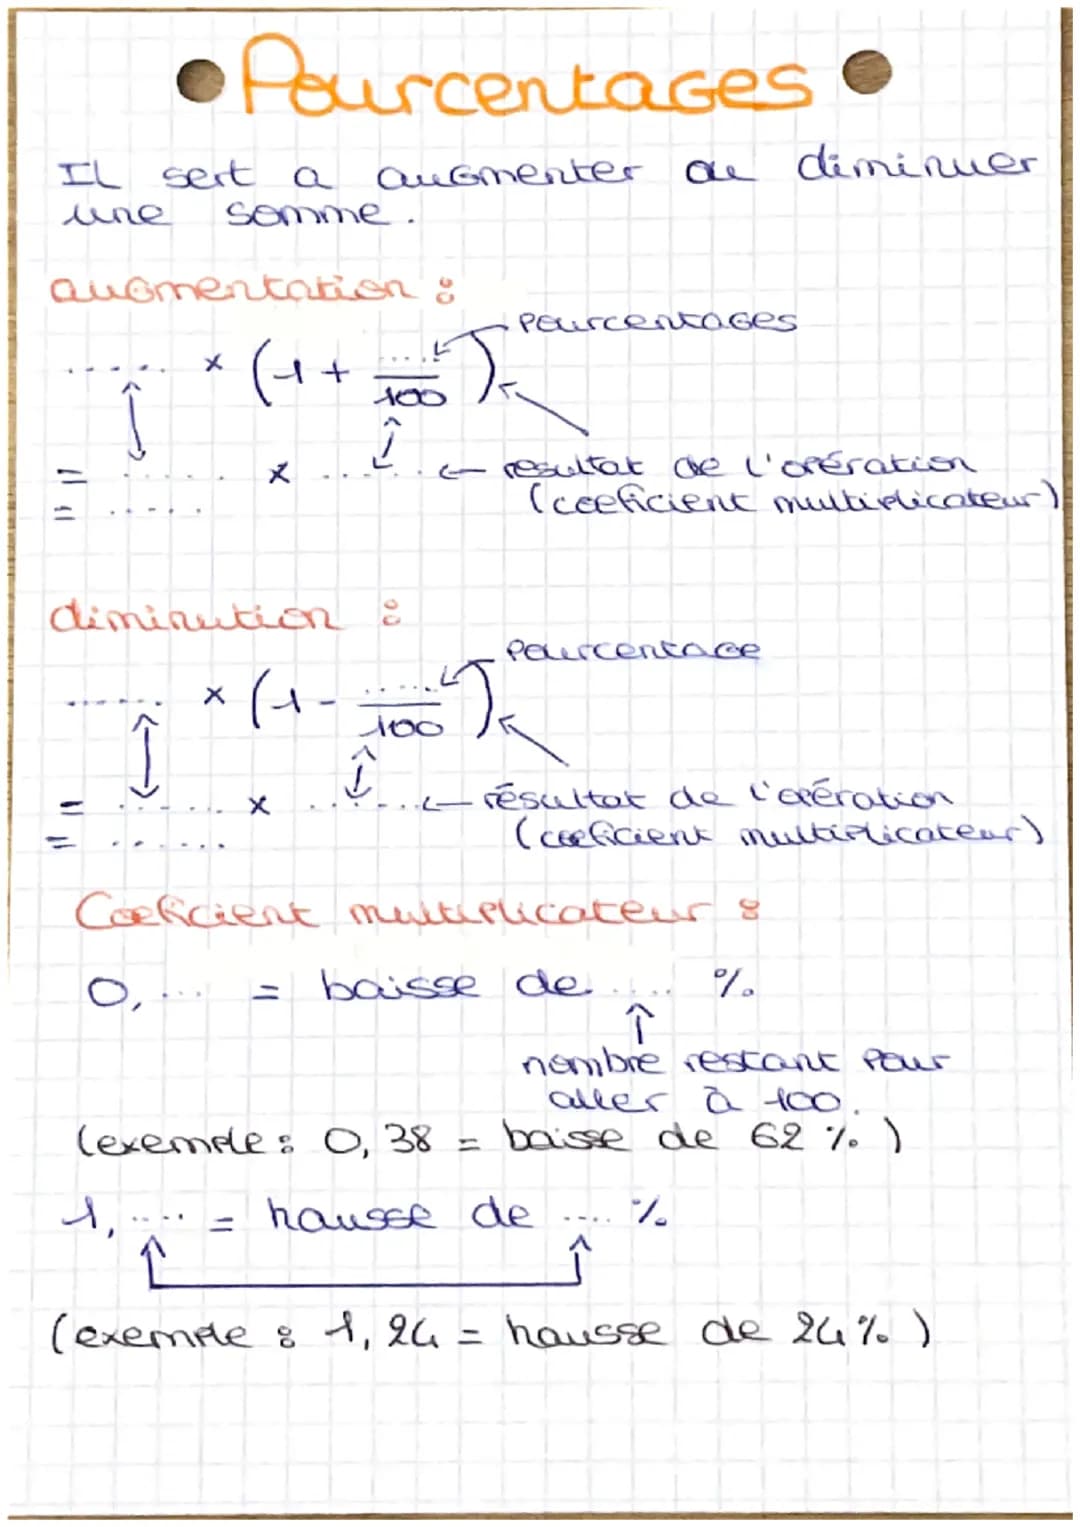 Pourcentages
Il sert a augmenter ou diminuer
une somme.
augmentation :
Pourcentages
...... × (1 + ..../100)
= ...... × ...... ← resultat de l'opération
= ...... (coeficient multiplicateur)
diminution :
Pourcentage
...... × (1 - ..../100)
= ...... × ...... ← résultat de l'opération
= ...... (coeficient multiplicateur)
Coeficient multiplicateur :
0,... = baisse de .... %
nombre restant pour
aller à 100.
(exemple : 0,38 = baisse de 62 %)
1,.... = hausse de .... %
(exemple : 1,24 = hausse de 24 %)